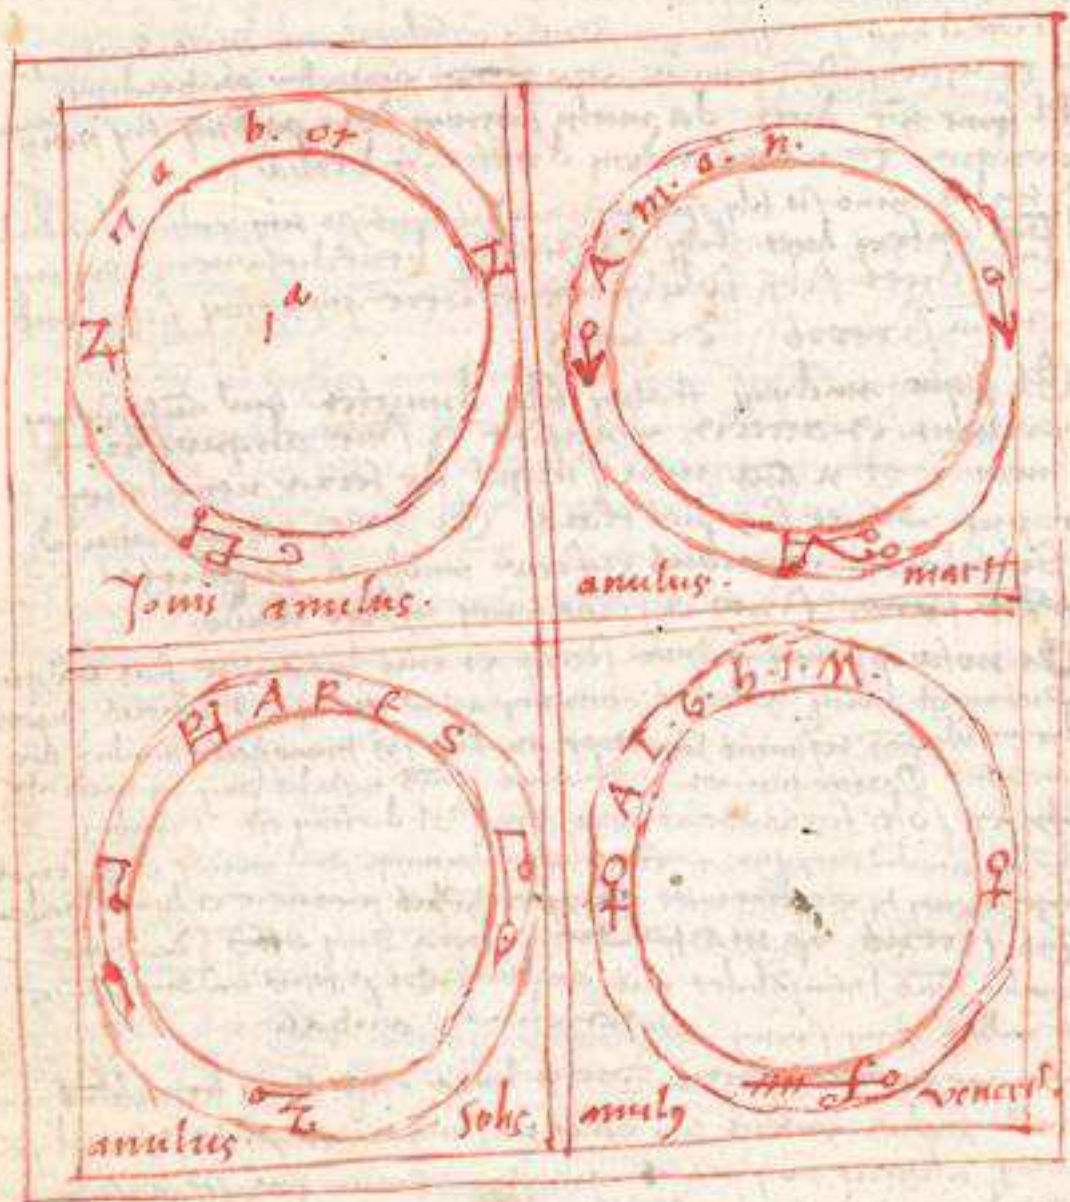 n a b. or
Jouis anulus.
A. m. a. n.
anulus. Mart
P A R E S
anulus. Solis.
A L. G. h. I. M.
anulꝯ veneris.